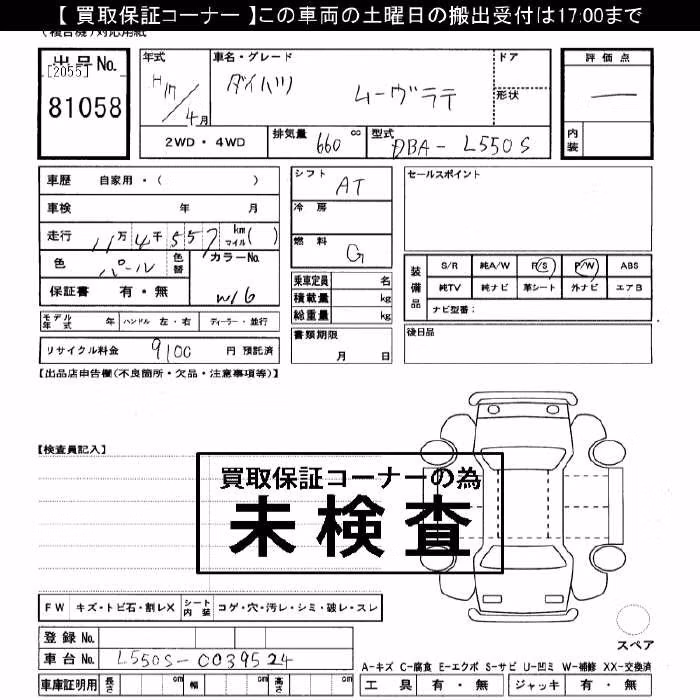 【 買取保証コーナー 】この車両の土曜日の搬出受付は17:00まで
(積合機)対応用紙
出品No.
[2055]
81058
年式 H17/4月
車名・グレード ダイハツ ムーヴラテ
ドア
形状
評価点 —
内装
2WD・4WD
排気量 660 cc
型式 DBA-L550S
車歴 自家用・( )
車検 年 月
走行 11万4千557 km マイル( )
色 パール 色替 カラーNo. W16
保証書 有・無
シフト AT
冷房
燃料 G
乗車定員 名
積載量 kg
総重量 kg
セールスポイント
装備品 S/R 純A/W P/S P/W ABS
純TV 純ナビ 革シート 外ナビ エアB
ナビ型番:
モデル年式 年 ハンドル 左・右 ディーラー・並行
書類期限 月 日
後日品
リサイクル料金 9100 円 預託済
【出品店申告欄(不良箇所・欠品・注意事項等)】
【検査員記入】
買取保証コーナーの為
未検査
FW キズ・トビ石・割レX シート内装 コゲ・穴・汚レ・シミ・破レ・スレ
スペア
登録No.
車台No. L550S-0039524
A-キズ C-腐食 E-エクボ S-サビ U-凹ミ W-補修 XX-交換済
車庫証明用 長さ cm 幅 cm 高さ cm
工具 有・無 ジャッキ 有・無